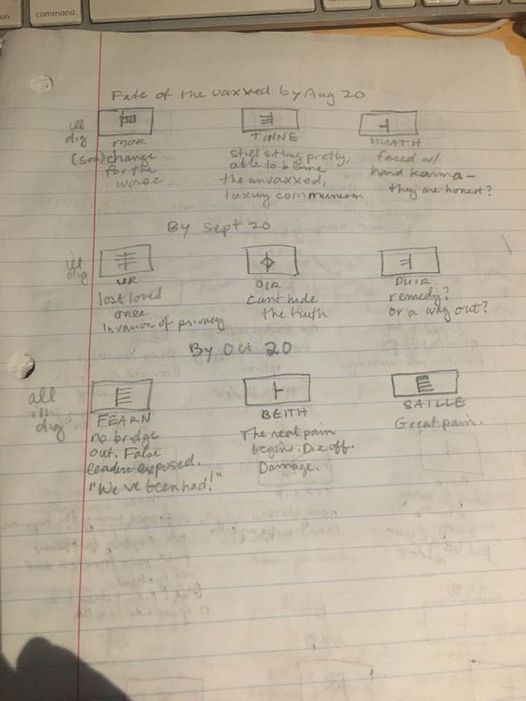 command
Fate of the vaxxed by Aug 20
ill dig
MOR TINNE HUATH
(sea) change for the worse
still sitting pretty, able to blame the unvaxxed, luxury communism
faced w/ hard karma - they are honest?
By Sept 20
ill dig
UR OIR DUIR
lost loved ones
Invasion of privacy
Can't hide the truth
remedy? or a way out?
By Oct 20
all ill dig
FEARN BEITH SAILLE
no bridge out. False leaders exposed. "We've been had!"
The real pain begin. Die off. Damage.
Great pain.